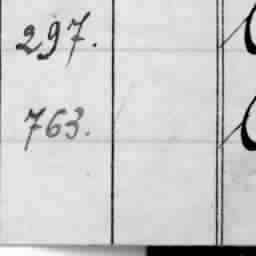 297.
763.